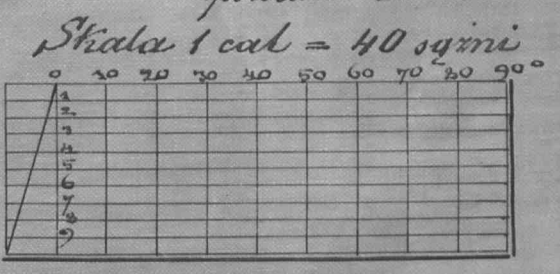 Skala 1 cal = 40 sążni
0 10 20 30 40 50 60 70 80 90°
1
2
3
4
5
6
7
8
9